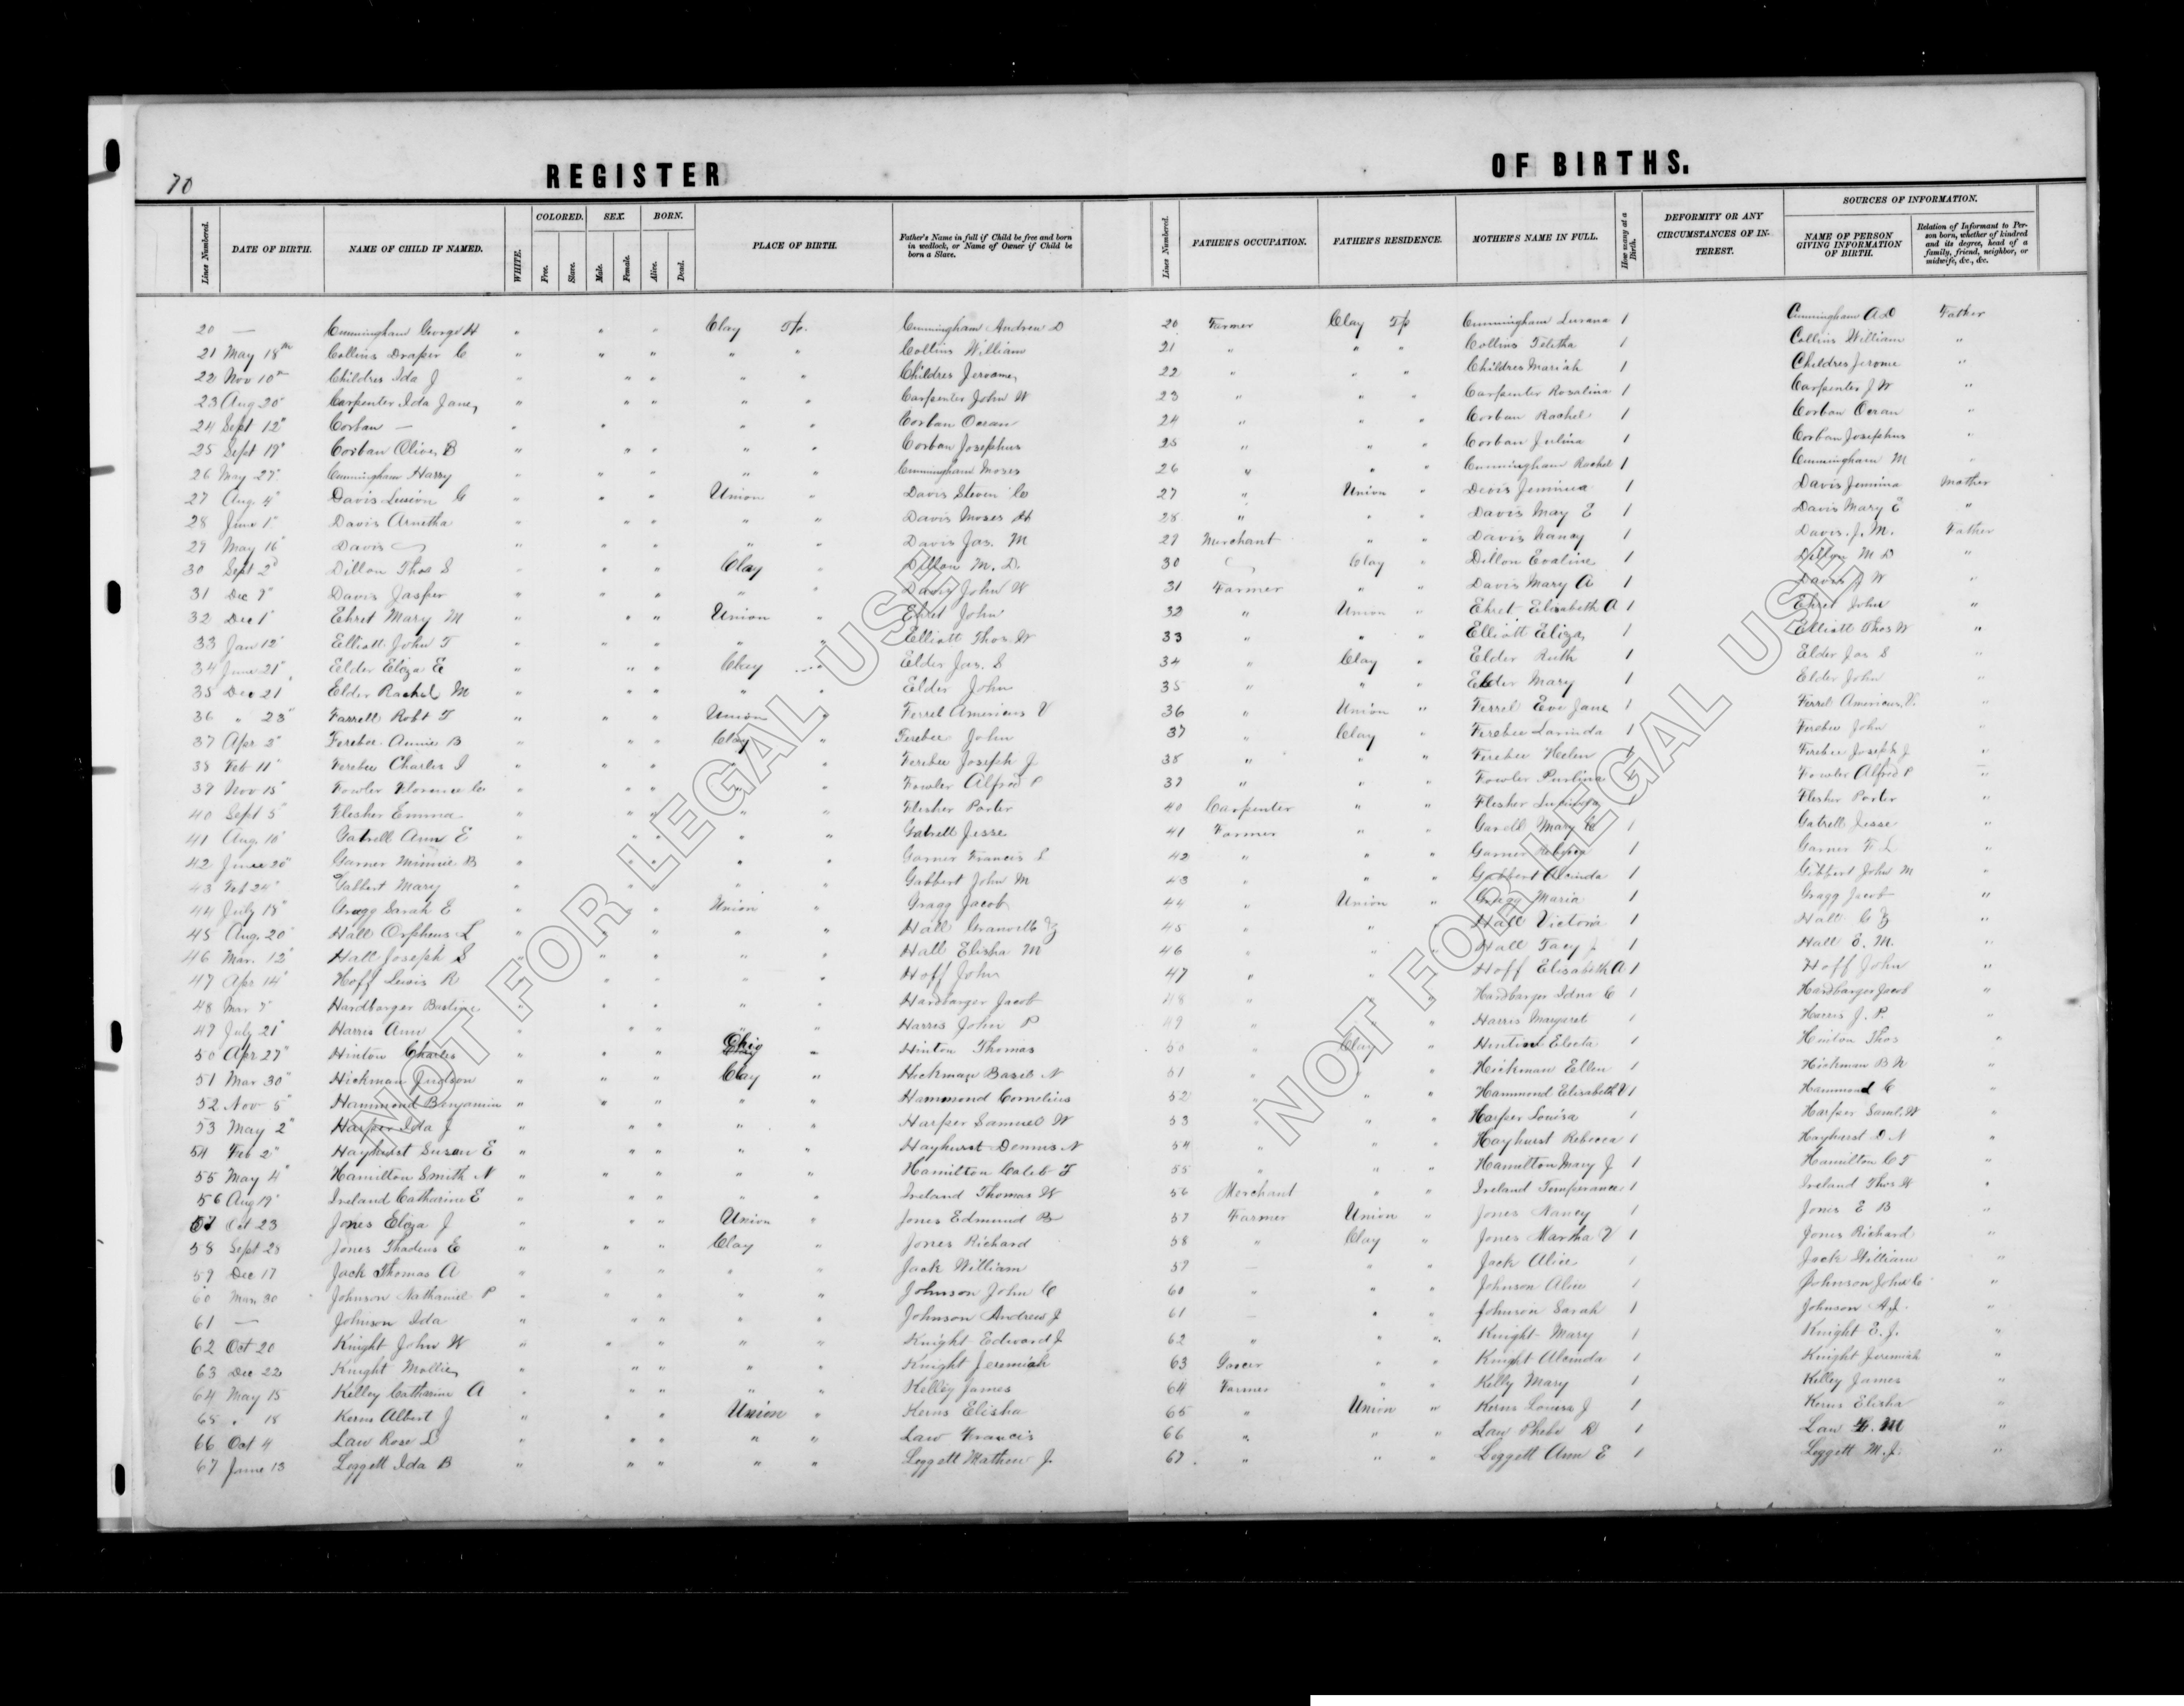 70 REGISTER OF BIRTHS.
Lines Numbered. DATE OF BIRTH. NAME OF CHILD IF NAMED. WHITE. COLORED. Free. Slave. SEX. Male. Female. BORN. Alive. Dead. PLACE OF BIRTH. Father's Name in full if Child be free and born in wedlock, or Name of Owner if Child be born a Slave. Lines Numbered. FATHER'S OCCUPATION. FATHER'S RESIDENCE. MOTHER'S NAME IN FULL. How many at a Birth. DEFORMITY OR ANY CIRCUMSTANCES OF INTEREST. SOURCES OF INFORMATION. NAME OF PERSON GIVING INFORMATION OF BIRTH. Relation of Informant to Person born, whether of kindred and its degree, head of a family, friend, neighbor, or midwife, &c., &c.
20 — Cunningham George H " " " Clay Tp. Cunningham Andrew D 20 Farmer Clay Tp Cunningham Lurana 1 Cunningham A D Father
21 May 18th Collins Draper C " " " " " Collins William 21 " " " Collins Telitha 1 Collins William "
22 Nov 10" Childres Ida J " " " " " Childres Jerome 22 " " " Childres Mariah 1 Childres Jerome "
23 Aug 20" Carpenter Ida Jane " " " " " Carpenter John W 23 " " " Carpenter Rosalina 1 Carpenter J W "
24 Sept 12" Corban — " " " " Corban Ocran 24 " " " Corban Rachel 1 Corban Ocran "
25 Sept 19" Corban Olive B " " " " " Corban Josephus 25 " " " Corban Julina 1 Corban Josephus "
26 May 27" Cunningham Harry " " " " " Cunningham Moses 26 " " " Cunningham Rachel 1 Cunningham M "
27 Aug 4" Davis G " " " Union " Davis Steven C 27 " Union " Davis Jemima 1 Davis Jemima Mother
28 June 1" Davis Arnetha " " " " " Davis Moses H 28 " " " Davis May E 1 Davis Mary E "
29 May 16" Davis — " " " " " Davis Jas. M 29 Merchant " " Davis Nancy 1 Davis. J. M. Father
30 Sept 2d Dillon Thos S " " " Clay " Dillon M. D. 30 — Clay " Dillon Evaline 1 Dillon M D "
31 Dec 9" Davis Jasper " " " " " Davis John W 31 Farmer " " Davis Mary A 1 Davis J W "
32 Dec 1" Ehret Mary M " " " Union " Ehret John 32 " Union " Ehret Elisabeth A 1 Ehret John "
33 Jan 12" Elliott John T " " " " " Elliott Thos. W 33 " " " Elliott Eliza 1 Elliott Thos W "
34 June 21" Elder Eliza E " " " Clay " Elder Jas. S 34 " Clay " Elder Ruth 1 Elder Jas S "
35 Dec 21 Elder Rachel M " " " " " Elder John 35 " " " Elder Mary 1 Elder John "
36 " 23" Farrell Robt T " " " Union " Ferrel Americus V 36 " Union " Ferrel Eve Jane 1 Ferrel Americus V. "
37 Apr 2" Ferebee Annie B " " " Clay " Ferebee John 37 " Clay " Ferebee Lavinda 1 Ferebee John "
38 Feb 11" Ferebee Charles I " " " " " Ferebee Joseph J 38 " " " Ferebee Helen 1 Ferebee Joseph J "
39 Nov 15" Fowler Florence C " " " " " Fowler Alfred P 39 " " " Fowler 1 Fowler Alfred P "
40 Sept 5" Flesher Emma " " " " " Flesher Porter 40 Carpenter " " Flesher 1 Flesher Porter "
41 Aug. 10" Gatrell Ann E " " " " " Gatrell Jesse 41 Farmer " " Mary 1 Gatrell Jesse "
42 June 20" Garner Minnie B " " " " " Garner Francis L 42 " " " Garner 1 Garner F L "
43 Feb 24" Gabbert Mary " " " " " Gabbert John M 43 " " " Gabbert Alcinda 1 Gibbert John M "
44 July 18" Gragg Sarah E " " " Union " Gragg Jacob 44 " Union " Gragg Maria 1 Gragg Jacob "
45 Aug. 20" Hall Orpheus L " " " " " Hall Granville Z 45 " " " Hall Victoria 1 Hall G Z "
46 Mar. 12" Hall Joseph S " " " " " Hall Elisha M 46 " " " Hall Tacy J 1 Hall E. M. "
47 Apr 14" Hoff Lewis R " " " " " Hoff John 47 " " " Hoff Elisabeth A 1 Hoff John "
48 Mar 7" Hardbarger " " " " " Hardbarger Jacob 48 " " " Hardbarger Idna C 1 Hardbarger Jacob "
49 July 21" Harris Ann " " " " " Harris John P 49 " " " Harris Margaret 1 Harris J. P. "
50 Apr 27" Hinton Charles " " " Ohio " Hinton Thomas 50 " Clay " Hinton Electa 1 Hinton Thos "
51 Mar 30" Hickman Judson " " " Clay " Hickman Basil N 51 " " " Hickman Ellen 1 Hickman B N "
52 Nov 5" Hammond Benjamin " " " " " Hammond Cornelius 52 " " " Hammond Elisabeth V 1 Hammond C "
53 May 2" Harper Ida J " " " " " Harper Samuel W 53 " " " Harper Louisa 1 Harper Saml. W "
54 Feb 2" Hayhurst Susan E " " " " " Hayhurst Dennis N 54 " " " Hayhurst Rebecca 1 Hayhurst D N "
55 May 4" Hamilton Smith N " " " " " Hamilton Caleb T 55 " " " Hamilton Mary J 1 Hamilton C T "
56 Aug 19" Ireland Catharine E " " " " " Ireland Thomas W 56 Merchant " " Ireland Temperance 1 Ireland Thos W "
57 Oct 23 Jones Eliza J " " " Union " Jones Edmund B 57 Farmer Union " Jones Nancy 1 Jones E B "
58 Sept 28 Jones Thadeus E " " " Clay " Jones Richard 58 " Clay " Jones Martha V 1 Jones Richard "
59 Dec 17 Jack Thomas A " " " " " Jack William 59 — " " Jack Alice 1 Jack William "
60 Mar 30 Johnson Nathaniel P " " " " " Johnson John C 60 " " " Johnson Alice 1 Johnson John C "
61 — Johnson Ida " " " " " Johnson Andrew J 61 — " " Johnson Sarah 1 Johnson A J. "
62 Oct 20 Knight John W " " " " " Knight Edward J. 62 " " " Knight Mary 1 Knight E. J. "
63 Dec 22 Knight Mollie " " " " " Knight Jeremiah 63 Grocer " " Knight Alcinda 1 Knight Jeremiah "
64 May 15 Kelley Catharine A " " " " " Kelley James 64 Farmer " " Kelly Mary 1 Kelley James "
65 " 18 Kerns Albert J " " " Union " Kerns Elisha 65 " Union " Kerns Louisa J 1 Kerns Elisha "
66 Oct 4 Law Rose L " " " " " Law Francis 66 " " " Law Phebe R 1 Law F. M "
67 June 13 Leggett Ida B " " " " " Leggett Mathew J. 67 " " " Leggett Ann E 1 Leggett M. J. "
NOT FOR LEGAL USE
NOT FOR LEGAL USE